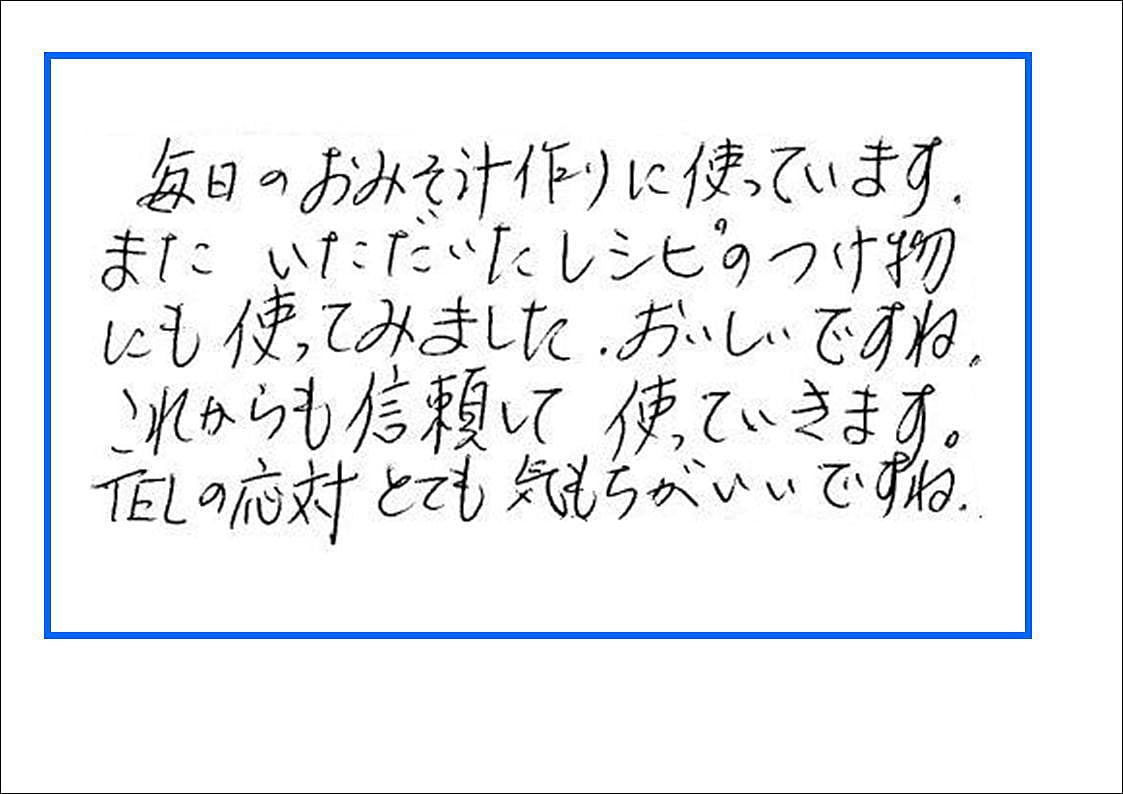 毎日のおみそ汁作りに使っています.
また いただいたレシピのつけ物
にも使ってみました.おいしいですね.
これからも信頼して 使っていきます。
TELの応対とても気もちがいいですね.